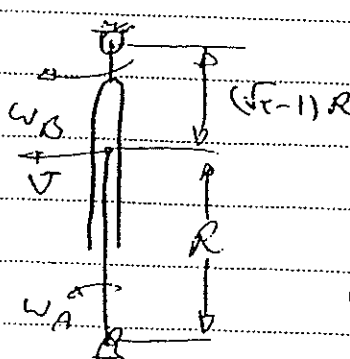 (√2-1) R
ω_B
V
R
ω_A